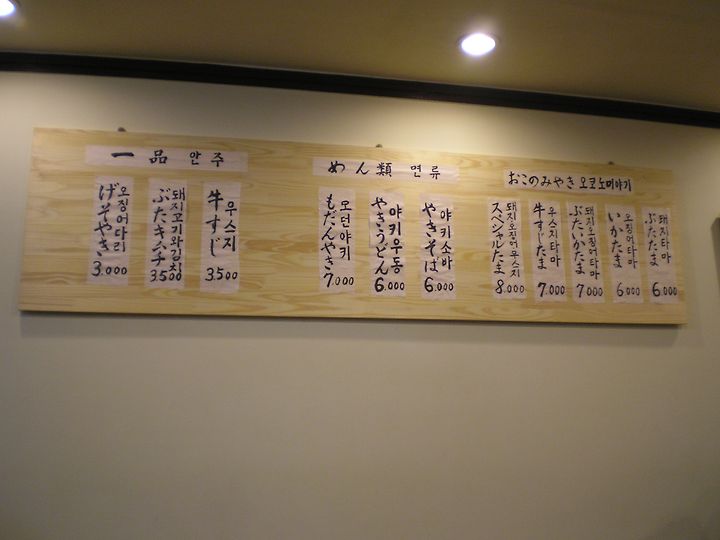 一品 안주
げそやき 오징어다리 3.000
ぶたキムチ 돼지고기와김치 3.500
牛すじ 우스지 3.500
めん類 면류
もだんやき 모던야키 7.000
やきうどん 야키우동 6.000
やきそば 야키소바 6.000
おこのみやき 오코노미야키
スペシャルたま 돼지오징어우스지 8.000
牛すじたま 우스지타마 7.000
ぶたいかたま 돼지오징어타마 7.000
いかたま 오징어타마 6.000
ぶたたま 돼지타마 6.000